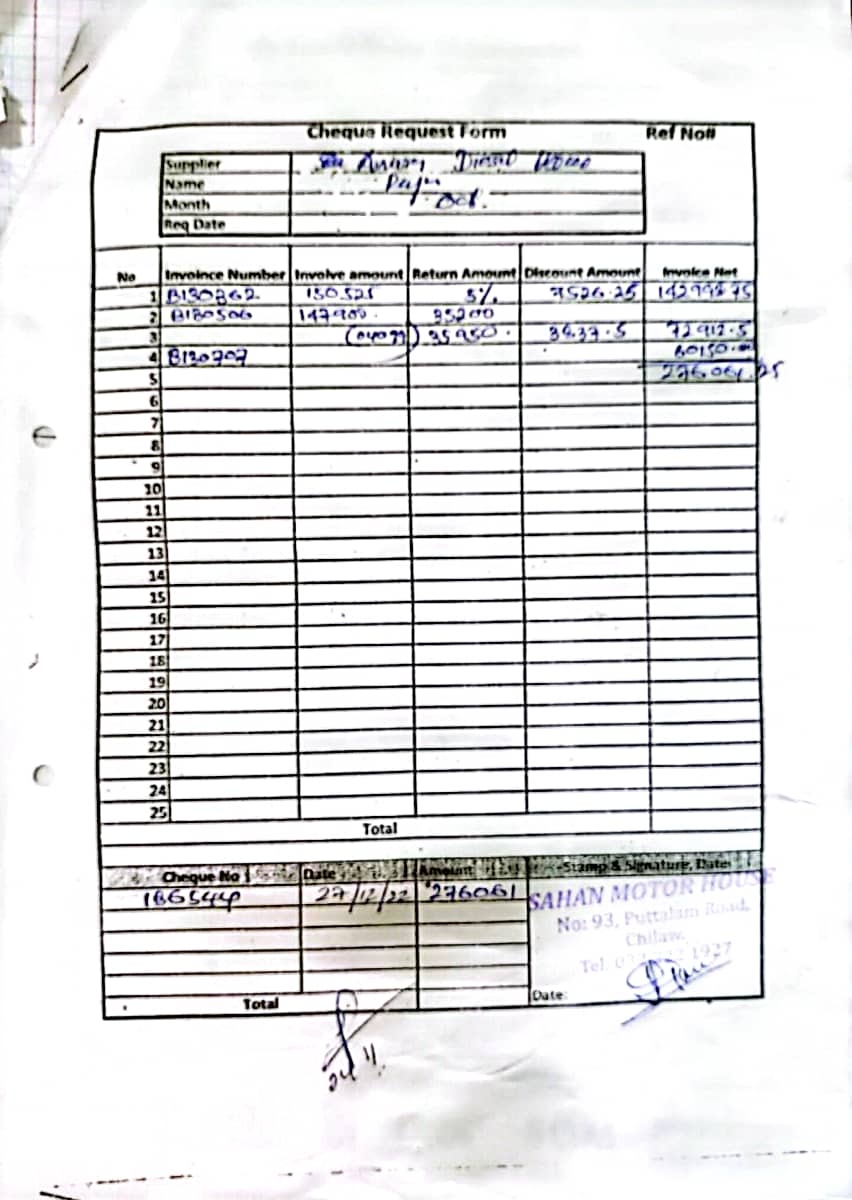 Cheque Request Form Ref No#
Supplier Diesel House
Name
Month Oct.
Req Date
No Invoince Number Involve amount Return Amount Discount Amount Invoice Net
1 B130362 150525 5% 7526.25 142998.75
2 B130506 147900. 35200
3 35950. 3837.5 72912.5
4 B130707 60150.00
5 276061.25
6
7
8
9
10
11
12
13
14
15
16
17
18
19
20
21
22
23
24
25
Total
Cheque No Date Amount Stamp & Signature, Date
186544 27/12/22 276061
SAHAN MOTOR HOUSE
No: 93, Puttalam Road,
Chilaw.
Tel. 1927
Date:
Total